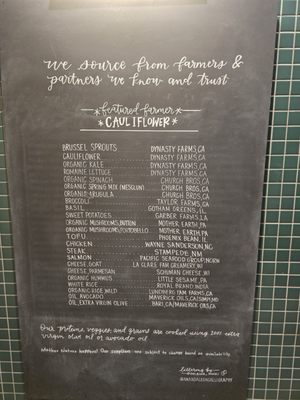 We source from farmers &
partners we know and trust
featured farmer
CAULIFLOWER
BRUSSEL SPROUTS DYNASTY FARMS, CA
CAULIFLOWER DYNASTY FARMS, CA
ORGANIC KALE DYNASTY FARMS, CA
ROMAINE LETTUCE DYNASTY FARMS, CA
ORGANIC SPINACH CHURCH BROS, CA
ORGANIC SPRING MIX (MESCLUN) CHURCH BROS, CA
ORGANIC ARUGULA CHURCH BROS, CA
BROCCOLI TAYLOR FARMS, CA
BASIL GOTHAM GREENS, IL
SWEET POTATOES GARBER FARMS, LA
ORGANIC MUSHROOMS, BUTTON MOTHER EARTH, PA
ORGANIC MUSHROOMS, PORTOBELLO MOTHER EARTH, PA
TOFU PHOENIX BEAN, IL
CHICKEN WAYNE SANDERSON, NC
STEAK STAMPEDE, NM
SALMON PACIFIC SEAFOOD GROUP, NORW
CHEESE, GOAT LA CLARE FARM CREAMERY, WI
CHEESE, PARMESAN SCHUMAN CHEESE, WI
ORGANIC HUMMUS LITTLE SESAME, PA
WHITE RICE ROYAL BRAND INDIA
ORGANIC RICE WILD LUNDBERG FAM FARMS, CA
OIL, AVOCADO MAVERICK OILS, CA
OIL, EXTRA VIRGIN OLIVE BARI, CA/MAVERICK OILS, CA
Our proteins, veggies and grains are cooked using 100% extra
virgin olive oil or avocado oil
Mother Nature happens! Our suppliers are subject to change based on availability.
lettering by